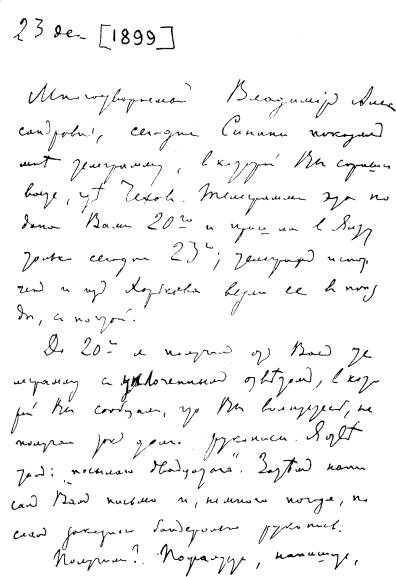 23 дек [1899]
Многоуважаемый Владимір Алек
сандровичъ, сегодня Синани показал
мнѣ телеграмму, в которой Вы спраши
ваете, гдѣ Чехов. Телеграмма эта по
дана Вами 20го и пришла в Ялту
только сегодня 23го; телеграф испор
чен и из Харькова везли ее в поез
де, с почтой.
До 20го я получил от Вас те
леграмму с уплоченным отвѣтом, в кото
рой Вы сообщали, что Вы волнуетесь, не
получая так долго рукописи. Я отвѣ
тил: „посылаю двадцатого“. Затѣм напи
сал Вам письмо и, немного погодя, по
слал заказной бандеролью рукопись.
Получили? Пожалуйста, напишите,